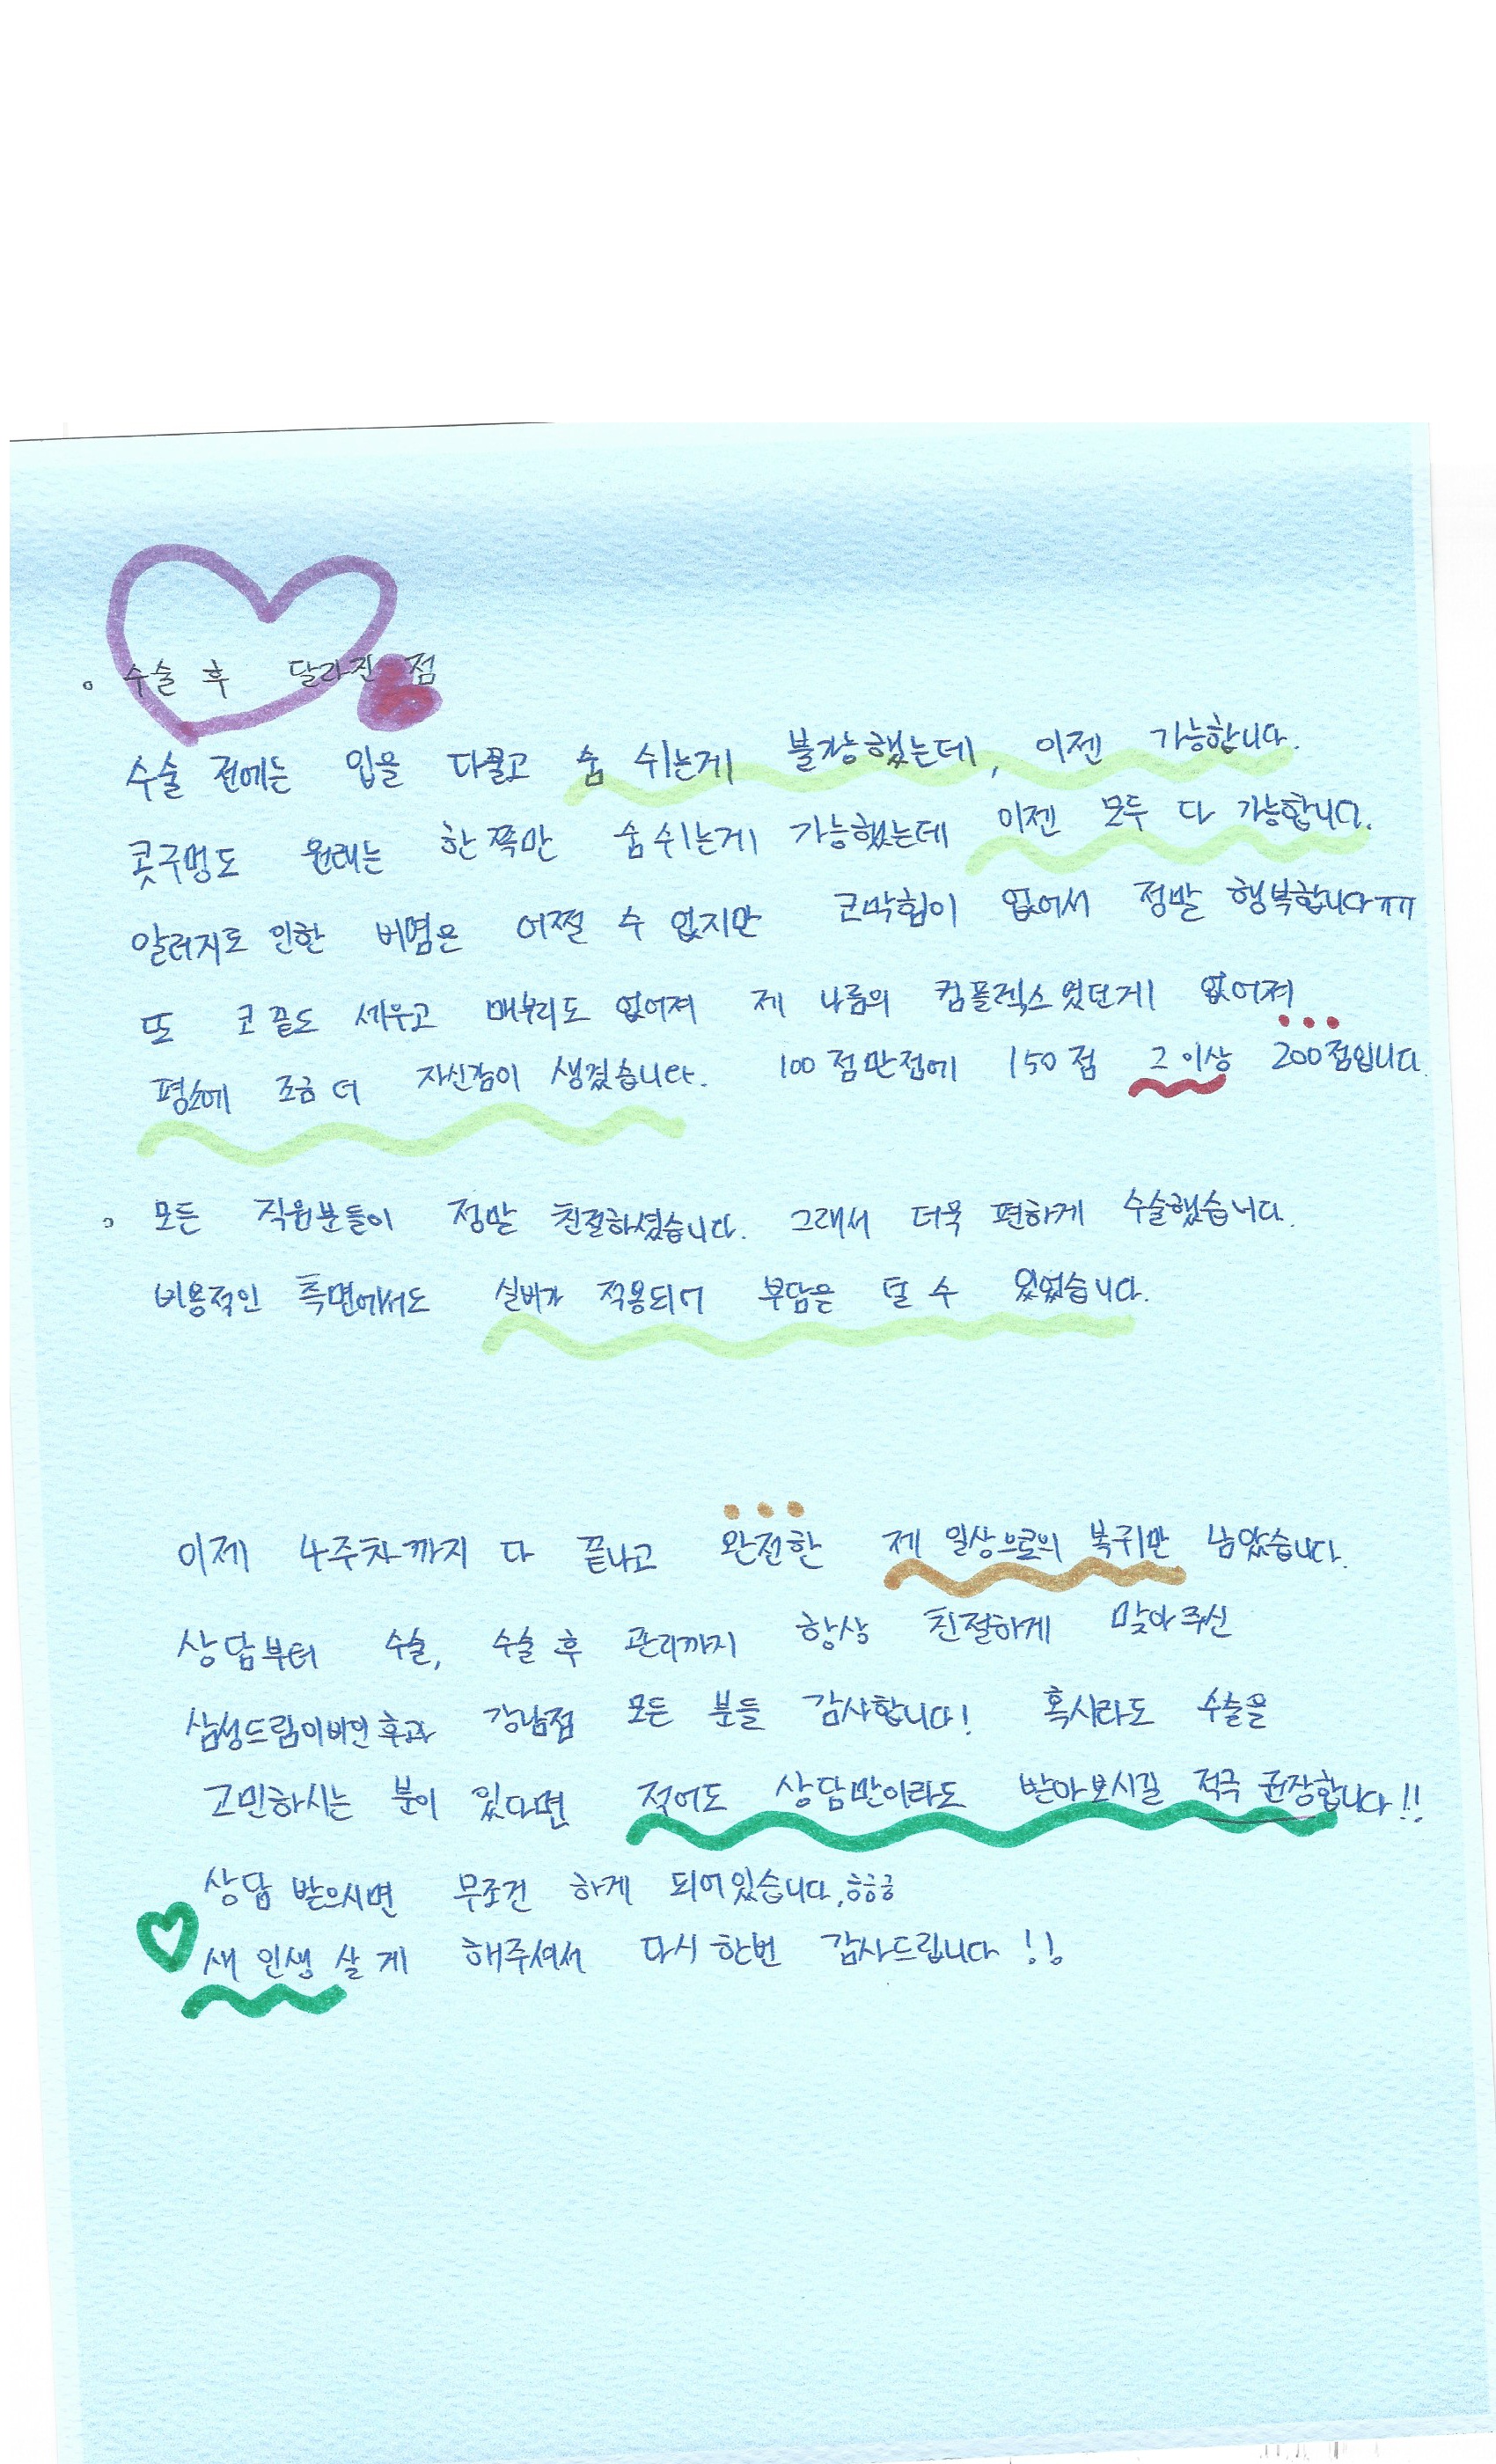 。 수술 후 달라진 점
수술 전에는 입을 다물고 숨 쉬는게 불가능했는데, 이젠 가능합니다.
콧구멍도 원래는 한 쪽만 숨쉬는게 가능했는데 이젠 모두 다 가능합니다.
알러지로 인한 비염은 어쩔 수 없지만 코막힘이 없어서 정말 행복합니다ㅠㅠ
또 코 끝도 세우고 매부리도 없어져 제 나름의 컴플렉스였던게 없어져
평소에 조금 더 자신감이 생겼습니다. 100점만점에 150점 그 이상 200점입니다.
。 모든 직원분들이 정말 친절하셨습니다. 그래서 더욱 편하게 수술했습니다.
비용적인 측면에서도 실비가 적용되어 부담은 덜 수 있었습니다.
이제 4주차까지 다 끝나고 완전한 제 일상으로의 복귀만 남았습니다.
상담부터 수술, 수술 후 관리까지 항상 친절하게 맞아주신
삼성드림이비인후과 강남점 모든 분들 감사합니다! 혹시라도 수술을
고민하시는 분이 있다면 적어도 상담만이라도 받아보시길 적극 권장합니다!!
상담 받으시면 무조건 하게 되어있습니다.ㅎㅎㅎ
새 인생 살게 해주셔서 다시 한번 감사드립니다!!